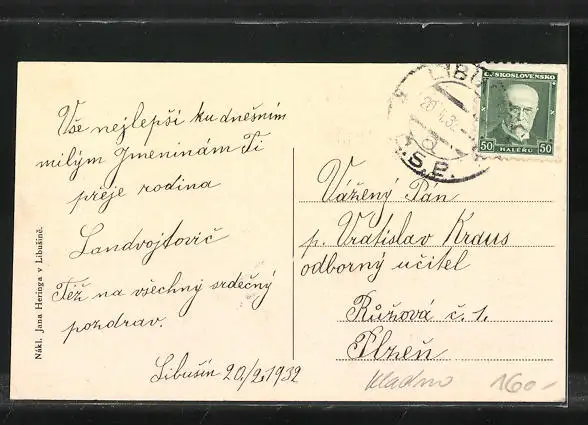 Vše nejlepší ku dnešním
milým Jmeninám Ti
přeje rodina
Landvojtovič
Též na všechny srdečný
pozdrav.
Libušín 20/2 1932
Nákl. Jana Heringa v Libušíně.
LIBUŠ
ČESKOSLOVENSKO
50 HALÉŘŮ 50
Vážený Pán
p. Vratislav Kraus
odborný učitel
Růžová č. 1.
Plzeň
Kladno 160-